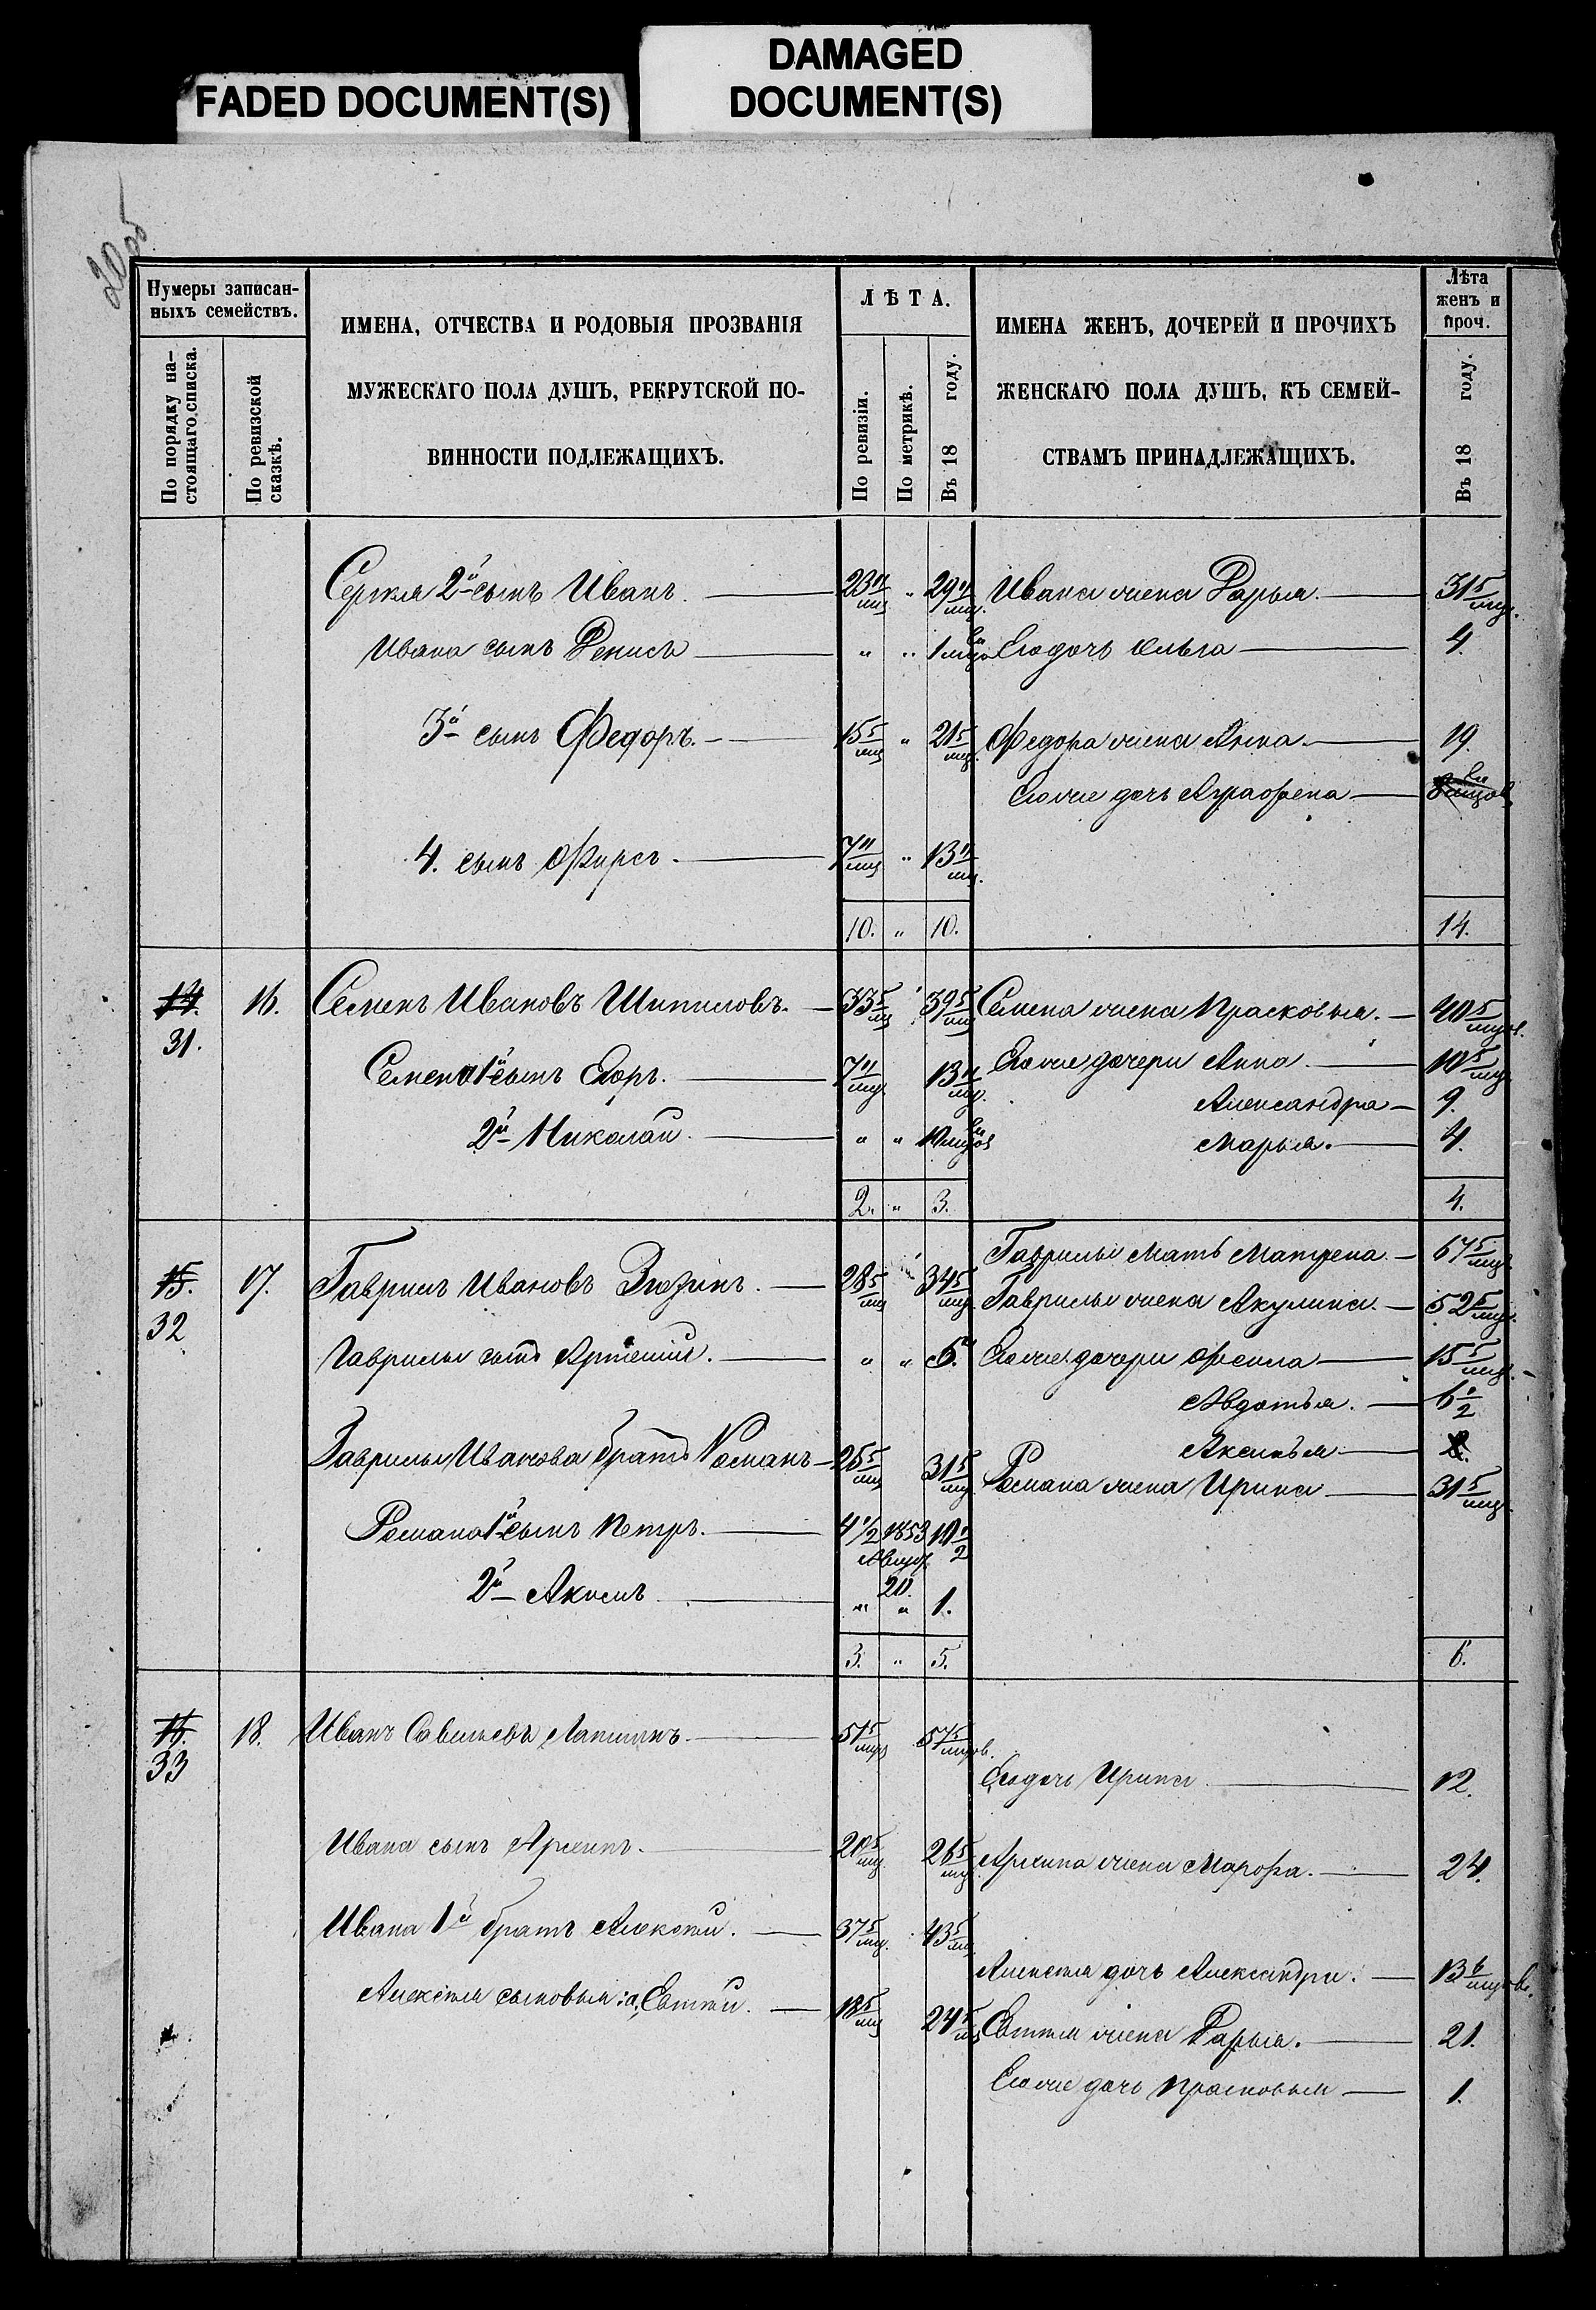 FADED DOCUMENT(S)
DAMAGED
DOCUMENT(S)
Нумеры записан-
ныхъ семействъ.
По порядку на-
стоящаго списка.
По ревизской
сказкѣ.
ИМЕНА, ОТЧЕСТВА И РОДОВЫЯ ПРОЗВАНІЯ
МУЖЕСКАГО ПОЛА ДУШЪ, РЕКРУТСКОЙ ПО-
ВИННОСТИ ПОДЛЕЖАЩИХЪ.
ЛѢТА.
По ревизіи.
По метрикѣ.
Въ 18 году.
ИМЕНА ЖЕНЪ, ДОЧЕРЕЙ И ПРОЧИХЪ
ЖЕНСКАГО ПОЛА ДУШЪ, КЪ СЕМЕЙ-
СТВАМЪ ПРИНАДЛЕЖАЩИХЪ.
Лѣта
женъ и
проч.
Въ 18 году.
Сергѣя 2й сынъ Иванъ. 23 11/мц " 29 11/мц. Ивана жена Дарья. 31 5/мц.
Ивана сынъ Денисъ " " 1 Его дочь Ольга 4.
3й сынъ Федоръ. 15 5/мц " 21 5/мц. Федора жена Анна. 19.
Его же дочь Аграфена
4. сынъ Фирсъ. 7 11/мц " 13 11/мц.
10. " 10. 14.
14. 16. Семенъ Ивановъ Шипиловъ. 33 5/мц 39 5/мц Семена жена Прасковья. 40 5/мцов.
31.
Семена 1й сынъ Егоръ. 7 11/мц. 13 11/мц. Его же дочери Анна. 10 5/мц.
Александра 9.
2й Николай. " " 10 Марья. 4.
2. " 3. 4.
Гаврилы мать Матрена. 67 5/мц.
15. 17. Гаврилъ Ивановъ Зюзинъ. 28 5/мц 34 5/мц. Гаврилы жена Акулина. 52 5/мц.
32
Гаврилы сынъ Артемій. " " 5. Его же дочери Фекла 15 5/мц.
Авдотья. 6 1/2
Гаврилы Иванова братъ Романъ 25 5/мц 31 5/мц. Аксинья
Романа жена Ирина 31 5/мц.
Романа 1й сынъ Петръ. 4 1/2 1853 10 1/2
Авгус.
20.
2й Акимъ " " 1.
3. " 5. 6.
18. Иванъ Савельевъ Лапшинъ. 51 5/мцъ 57 5/мцов.
33
Его дочь Ирина 12.
Ивана сынъ Архипъ. 20 5/мц 26 5/мц Архипа жена Марфа. 24.
Ивана 1й братъ Алексѣй. 37 5/мц. 43 5/мц
Алексѣя дочь Александра. 13 6/мцовъ.
Алексѣя сыновья: а, Евтѣй. 18 5/мц 24 5/мц Евтѣя жена Дарья. 21.
Его же дочь Прасковья 1.